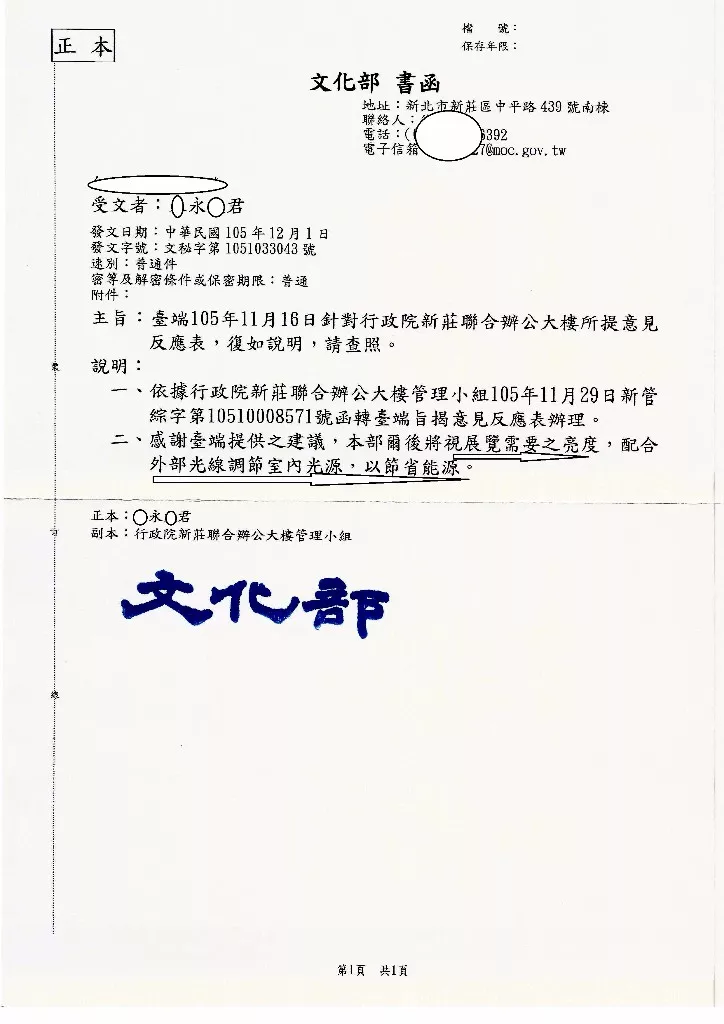 檔　　號：
保存年限：
正 本
文化部 書函
地址：新北市新莊區中平路439號南棟
聯絡人：
電話：( 392
電子信箱 7@moc.gov.tw
受文者： 永 君
發文日期：中華民國105年12月1日
發文字號：文秘字第1051033043號
速別：普通件
密等及解密條件或保密期限：普通
附件：
主旨：臺端105年11月16日針對行政院新莊聯合辦公大樓所提意見
反應表，復如說明，請查照。
說明：
一、依據行政院新莊聯合辦公大樓管理小組105年11月29日新管
綜字第10510008571號函轉臺端旨揭意見反應表辦理。
二、感謝臺端提供之建議，本部爾後將視展覽需要之亮度，配合
外部光線調節室內光源，以節省能源。
裝
訂
線
正本：○永○君
副本：行政院新莊聯合辦公大樓管理小組
文化部
第1頁 共1頁